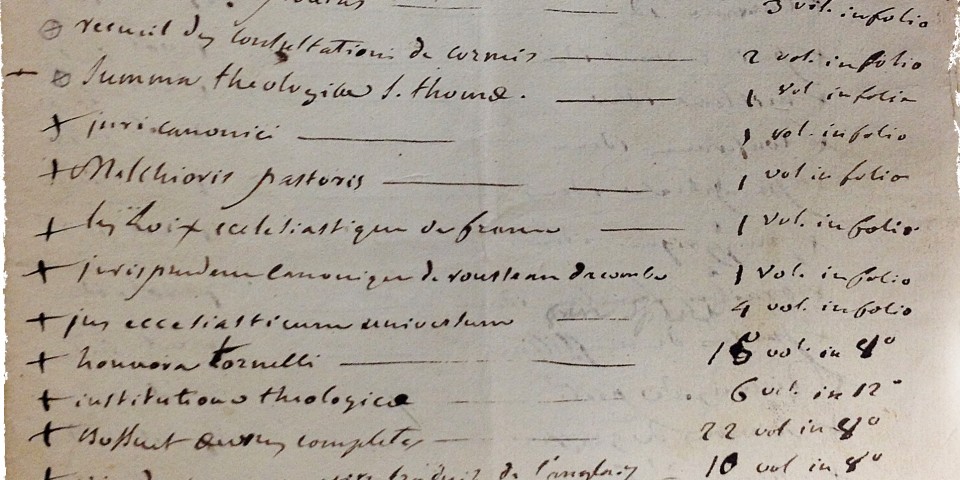 3 vol. infolio
recueil des consultations de cormis 2 vol. infolio
Summa theologica S. thomæ. 1 vol infolio
juris canonici 1 vol. infolio
Melchioris pastoris 1 vol infolio
les Loix ecclesiastique de france 1 vol. infolio
jurisprudence canonique de rousseau dacombe 1 vol. infolio
jus ecclesiasticum universum 4 vol. infolio
honnora tornelli 15 vol. in 8°
institutiones theologicæ 6 vol. in 12°
Bossuet œuvres completes 22 vol in 8°
traduit de l'anglois 10 vol in 8°